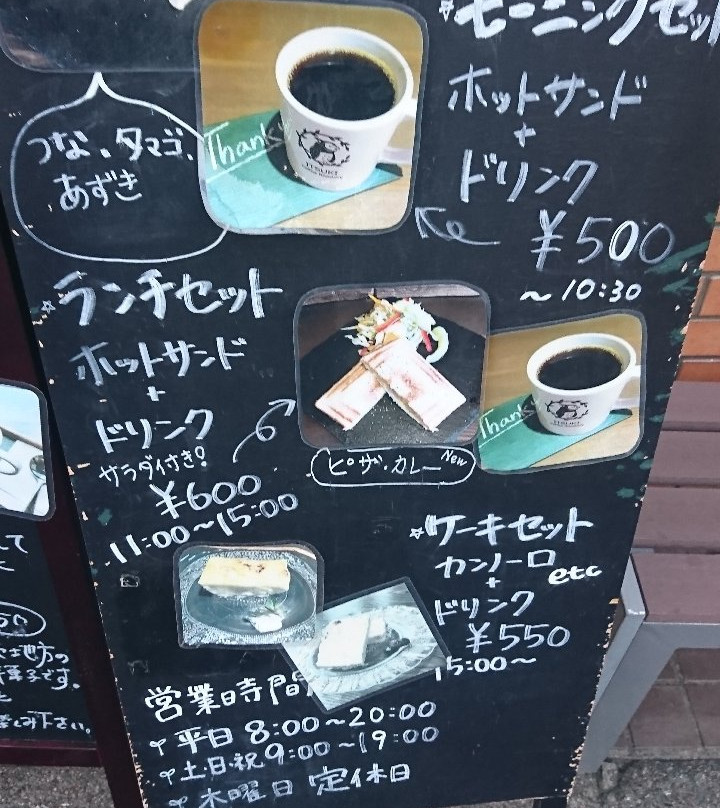 モーニングセット
ホットサンド
+
ドリンク
¥500
～10:30
つな、タマゴ、
あずき
Thanks
ITSUKI
ランチセット
ホットサンド
+
ドリンク
サラダ付き!
¥600
11:00～15:00
Thank
ピザ・カレー New
ケーキセット
カンノーロ
etc
+
ドリンク
¥550
15:00～
営業時間
平日 8:00～20:00
土・日・祝 9:00～19:00
木曜日 定休日
地方の
菓子です。
下さい。